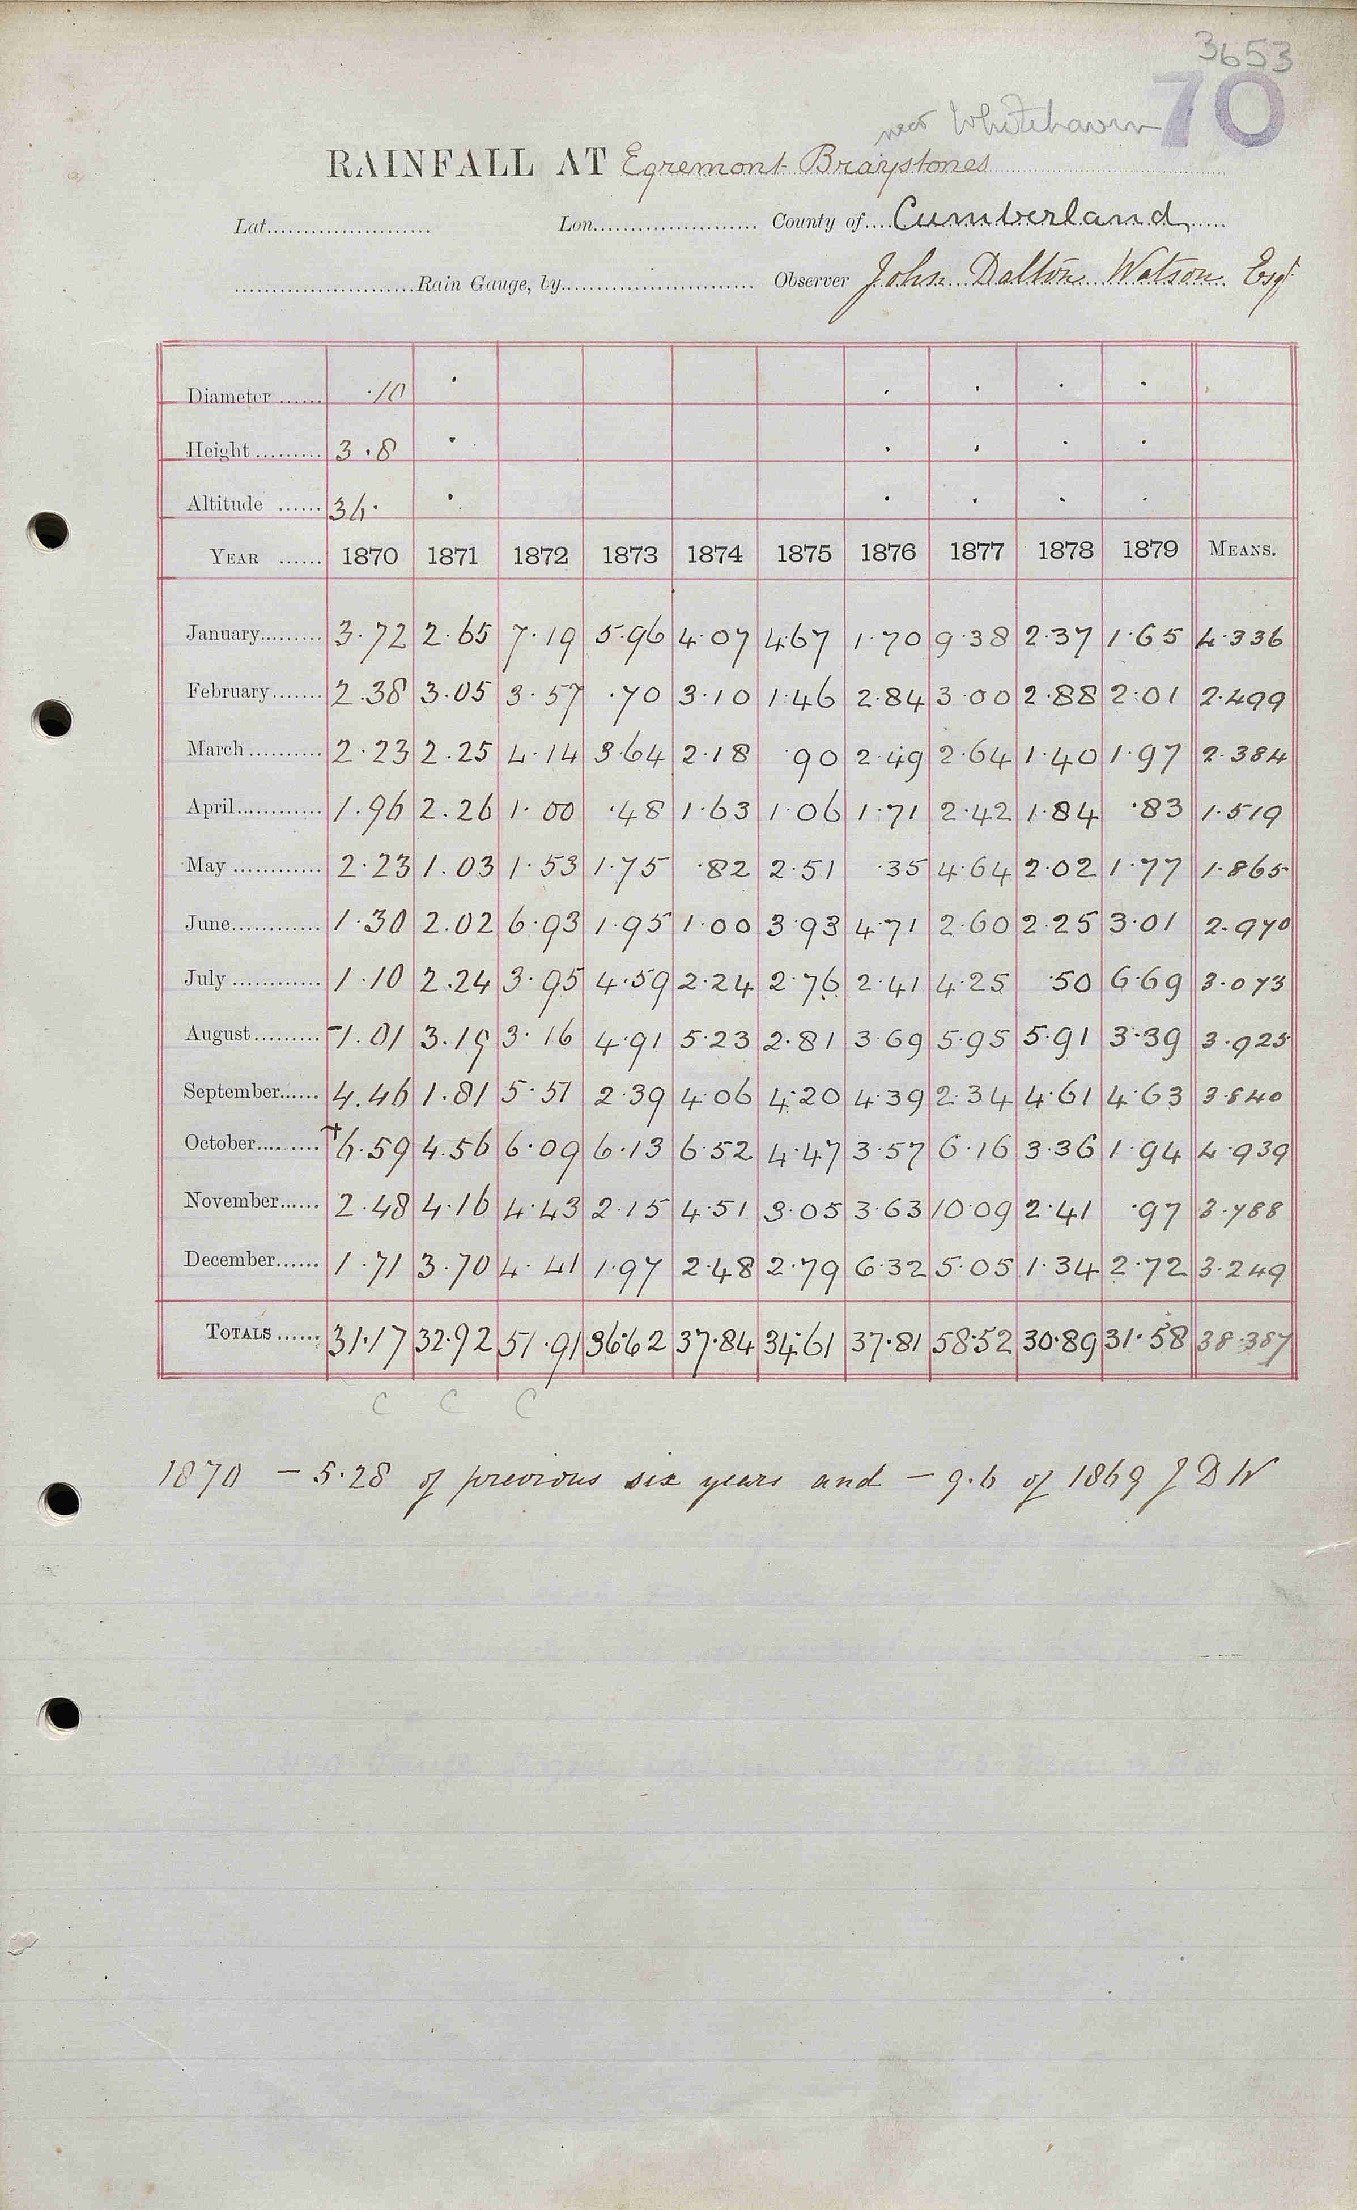 3653
70
near Whitehaven
RAINFALL AT Egremont Braystones
Lat. Lon. County of Cumberland
Rain Gauge, by Observer John Dalton Watson Esqr
Diameter ·10
Height 3·8
Altitude 36·
YEAR 1870 1871 1872 1873 1874 1875 1876 1877 1878 1879 MEANS.
January 3·72 2·65 7·19 5·96 4·07 4·67 1·70 9·38 2·37 1·65 4·336
February 2·38 3·05 3·57 ·70 3·10 1·46 2·84 3·00 2·88 2·01 2·499
March 2·23 2·25 4·14 3·64 2·18 ·90 2·49 2·64 1·40 1·97 2·384
April 1·96 2·26 1·00 ·48 1·63 1·06 1·71 2·42 1·84 ·83 1·519
May 2·23 1·03 1·53 1·75 ·82 2·51 ·35 4·64 2·02 1·77 1·865
June 1·30 2·02 6·93 1·95 1·00 3·93 4·71 2·60 2·25 3·01 2·970
July 1·10 2·24 3·95 4·59 2·24 2·76 2·41 4·25 ·50 6·69 3·073
August -1·01 3·19 3·16 4·91 5·23 2·81 3·69 5·95 5·91 3·39 3·925
September 4·46 1·81 5·51 2·39 4·06 4·20 4·39 2·34 4·61 4·63 3·840
October +6·59 4·56 6·09 6·13 6·52 4·47 3·57 6·16 3·36 1·94 4·939
November 2·48 4·16 4·43 2·15 4·51 3·05 3·63 10·09 2·41 ·97 3·788
December 1·71 3·70 4·41 1·97 2·48 2·79 6·32 5·05 1·34 2·72 3·249
TOTALS 31·17 32·92 51·91 36·62 37·84 34·61 37·81 58·52 30·89 31·58 38·387
C C C
1870 - 5·28 of previous six years and - 9·6 of 1869 J D W